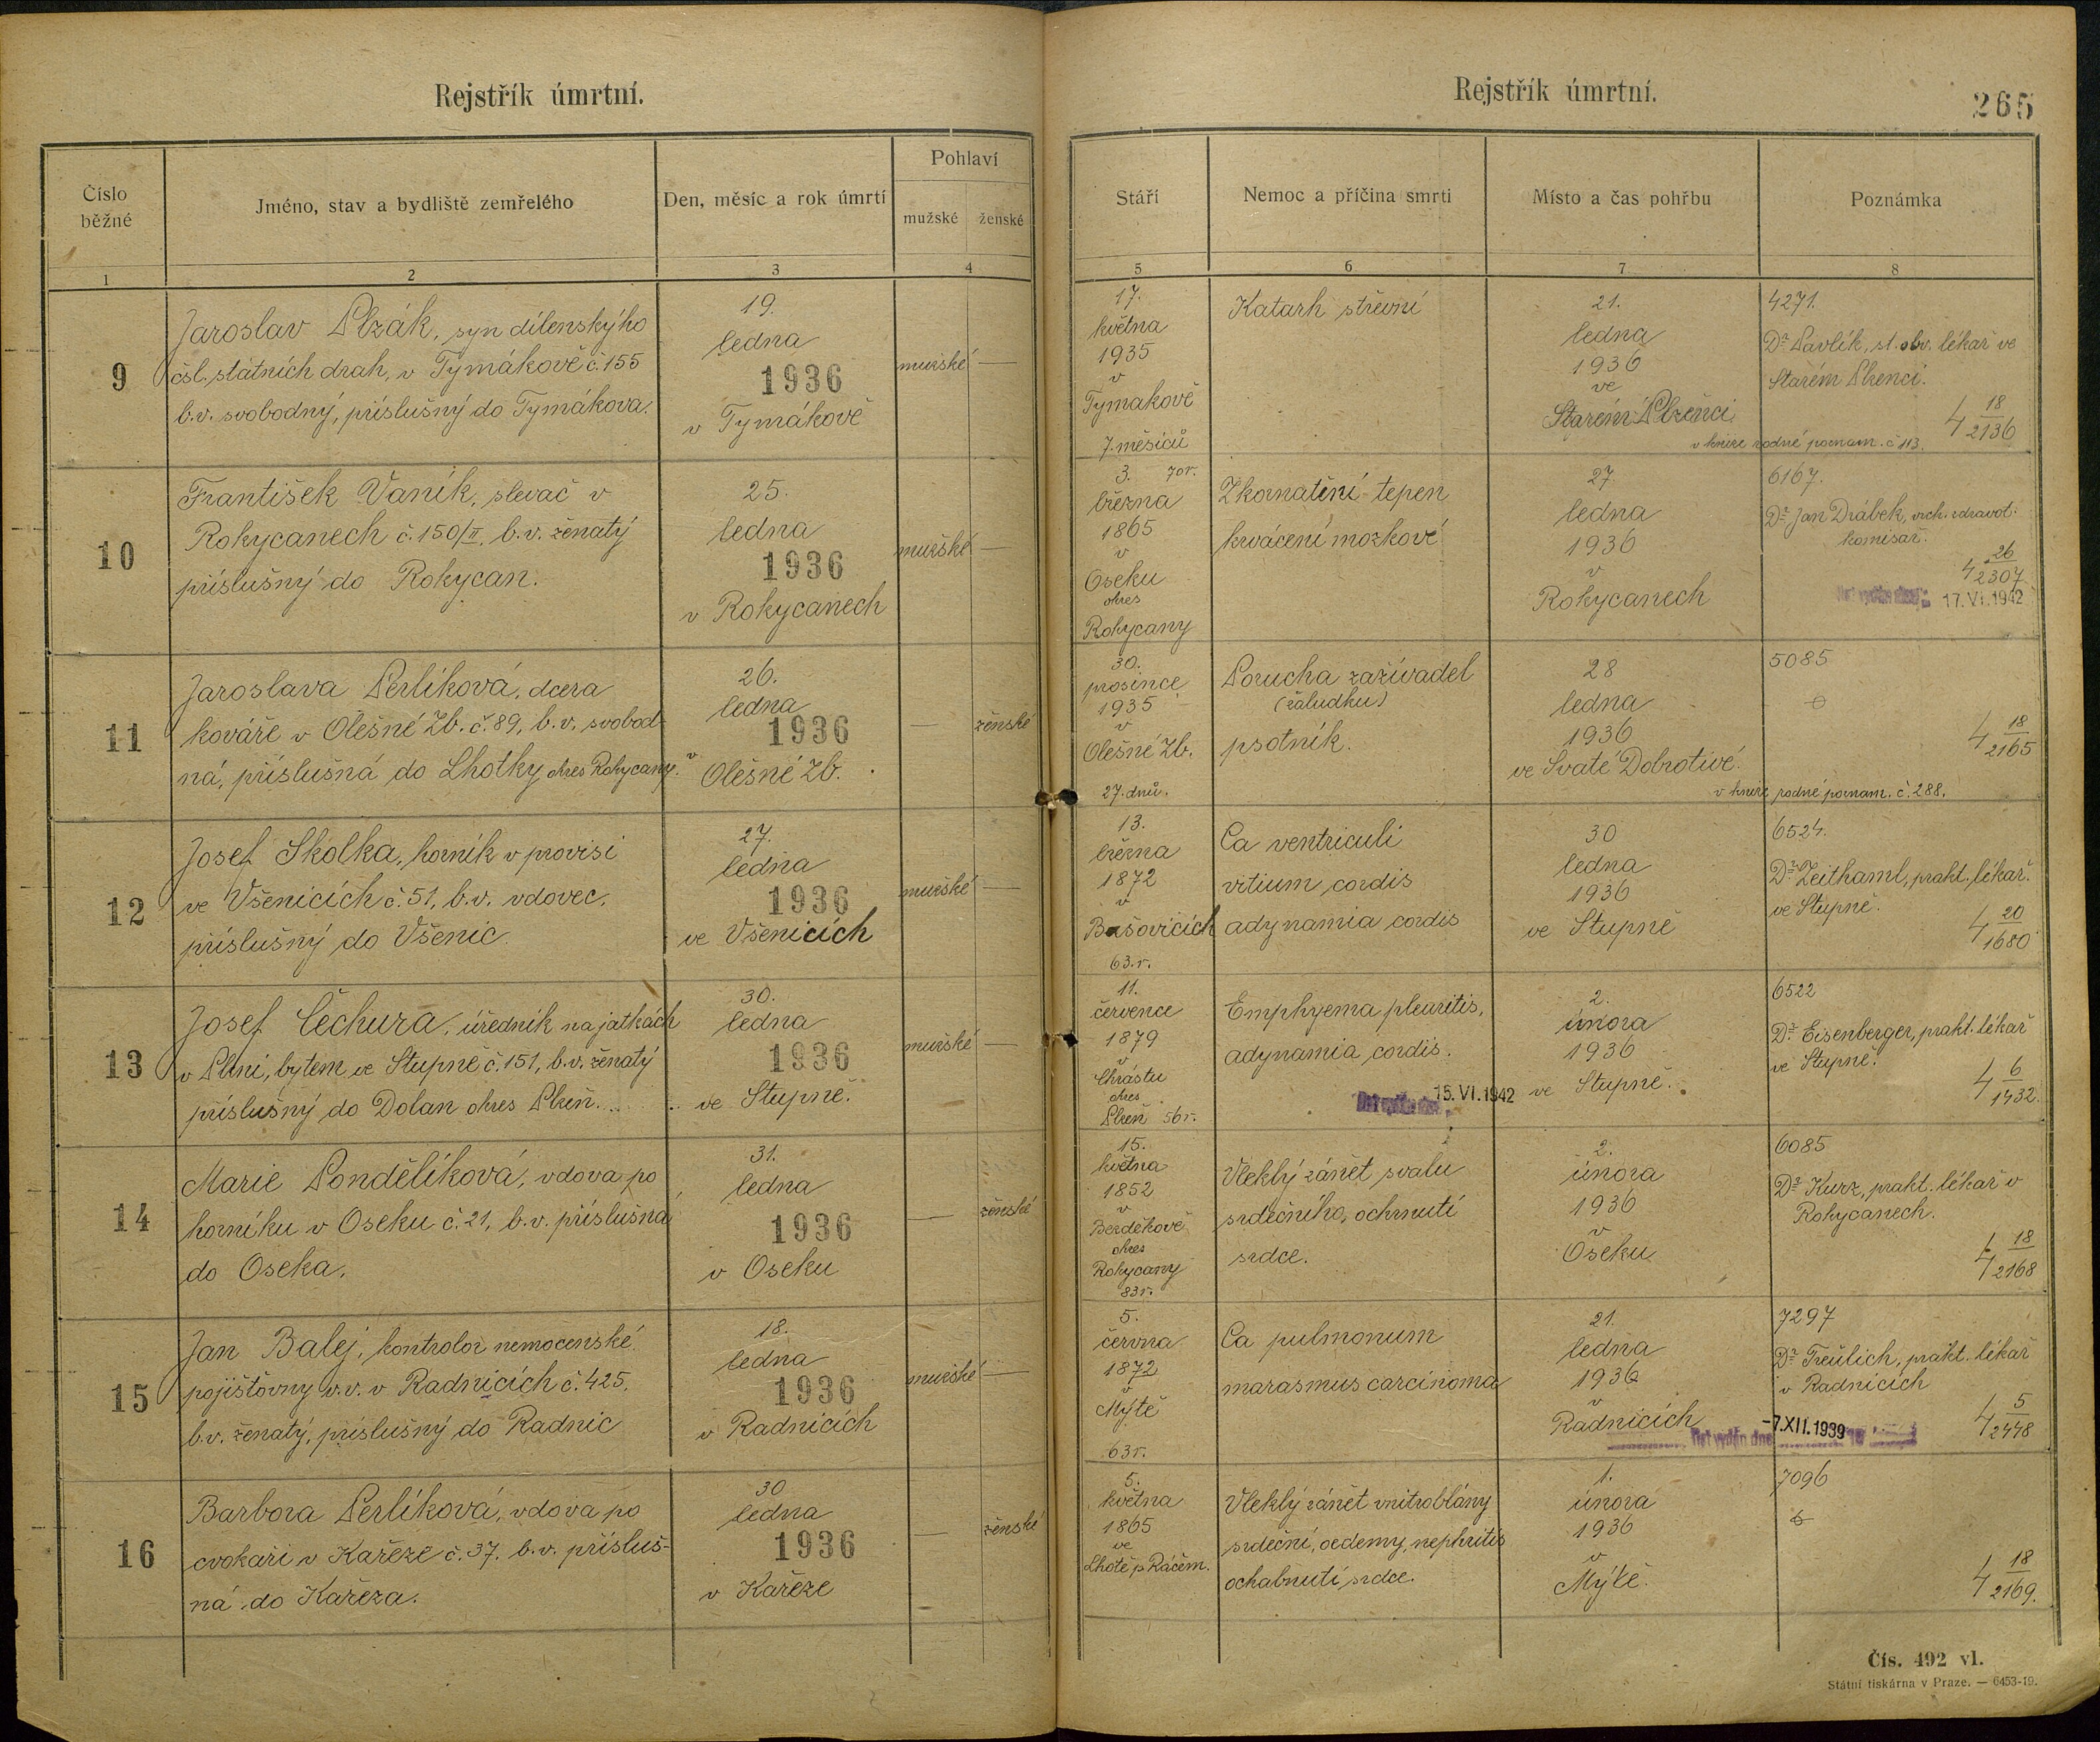 Rejstřík úmrtní.
Číslo běžné
Jméno, stav a bydliště zemřelého
Den, měsíc a rok úmrtí
Pohlaví
mužské
ženské
1
2
3
4
9
Jaroslav Plzák, syn dílenskýho
čsl. státních drah, v Tymákově č. 155
b.v. svobodný, příslušný do Tymákova.
19.
ledna
1936
v Tymákově
mužské —
10
František Vaník, slevač v
Rokycanech č. 150/II. b.v. ženatý
příslušný do Rokycan.
25.
ledna
1936
v Rokycanech
mužské —
11
Jaroslava Perlíková, dcera
kováře v Olešné Zb. č. 89, b.v. svobod-
ná, příslušná do Lhotky okres Rokycany.
26.
ledna
1936
v
Olešné Zb.
— ženské
12
Josef Skolka, horník v provisi
ve Všenicích č. 51, b.v. vdovec,
příslušný do Všenic.
27.
ledna
1936
ve Všenicích
mužské —
13
Josef Čechura, úředník na jatkách
v Plzni, bytem ve Stupně č. 151, b.v. ženatý
příslušný do Dolan okres Plzeň.
30.
ledna
1936
ve Stupně.
mužské —
14
Marie Pondělíková, vdova po
horníku v Oseku č. 21, b.v. příslušná
do Oseka.
31.
ledna
1936
v Oseku
— ženské
15
Jan Balej, kontrolor nemocenské
pojišťovny v.v. v Radnicích č. 425,
b.v. ženatý, příslušný do Radnic
18.
ledna
1936
v Radnicích
mužské —
16
Barbora Perlíková, vdova po
cvokaři v Kařeze č. 37. b.v. přísluš-
ná do Kařeza.
30
ledna
1936
v Kařeze
— ženské
Rejstřík úmrtní.
265
Stáří
Nemoc a příčina smrti
Místo a čas pohřbu
Poznámka
5
6
7
8
17.
května
1935
v
Tymakově
7. měsíců
Katarh střevní
21.
ledna
1936
ve
Starém Plzenci.
4271.
Dr. Pavlík, st. obv. lékař ve
Starém Plzenci.
4 18/2136
v knize rodné poznam. č. 113.
3. 70r.
března
1865
v
Oseku
okres
Rokycany
Zkornatění tepen
krvácení mozkové
27
ledna
1936
v
Rokycanech
6167.
Dr. Jan Drábek, vrch. zdravot.
komisař.
4 26/2307
17.VI.1942
30.
prosince
1935
v
Olešné Zb.
27. dnů.
Porucha zažívadel
(žaludku)
psotník.
28
ledna
1936
ve Svaté Dobrotivé.
5085
4 18/2165
v knize rodné poznam. č. 288.
13.
března
1872
v
Bušovicích
63. r.
Ca ventriculi
vitium cordis
adynamia cordis
30
ledna
1936
ve Stupně
6524.
Dr. Zeithaml, prakt. lékař.
ve Stupně.
4 20/1680
11.
července
1879
v
Chrástu
okres
Plzeň 56r.
Emphyema pleuritis,
adynamia cordis.
15.VI.1942
2.
února
1936
ve Stupně.
6522
Dr. Eisenberger, prakt. lékař
ve Stupně.
4 6/1432.
15.
května
1852
v
Bezděkově
okres
Rokycany
83r.
Vleklý zánět svalu
srdečního, ochrnutí
srdce.
2.
února
1936
v
Oseku
6085
Dr. Kurz, prakt. lékař v
Rokycanech.
4 18/2168
5.
června
1872
v
Mýtě
63r.
Ca pulmonum
marasmus carcinoma
21.
ledna
1936
v
Radnicích
7297
Dr. Treülich, prakt. lékař
v Radnicích
4 5/2448
List vydán dne -7.XII.1939
5.
května
1865
ve
Lhotě p Ráčem.
Vleklý zánět vnitroblány
srdeční, oedemy, nephritis
ochabnutí srdce.
1.
února
1936
v
Mýtě.
7096
4 18/2169.
Čís. 492 vl.
Státní tiskárna v Praze. — 6453-19.